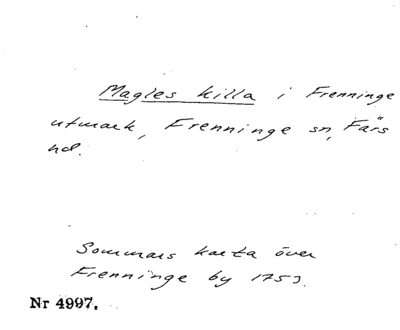 Magles killa i Frenninge
utmark, Frenninge sn, Färs
hd.
Sommars karta över
Frenninge by 1753.
Nr 4997.